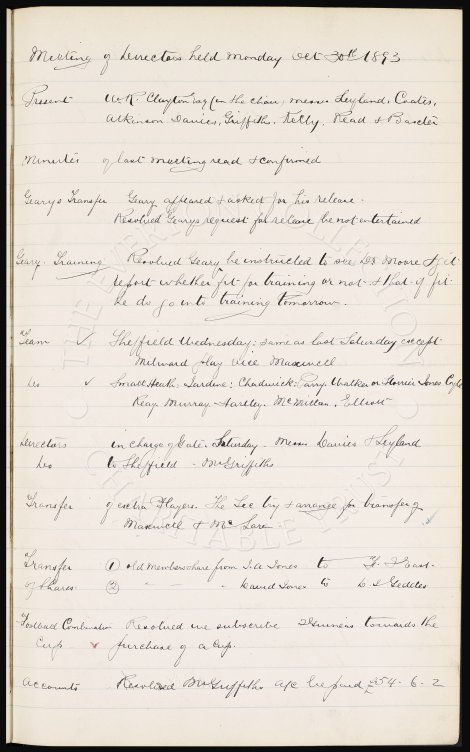 Meeting of Directors held Monday Oct 30th 1893
Present W.R. Clayton Esq (in the chair) messrs Leyland, Coates,
Atkinson Davies, Griffiths, Kelly, Read & Baxter
Minutes of last meeting read & confirmed
Gearys Transfer Geary appeared & asked for his release.
Resolved Gearys request for release be not entertained
Geary. Training Resolved Geary be instructed to see Dr Moore & get
report whether fit for training or not & that if fit
he do go into training tomorrow.
"A" Team ✓ Sheffield Wednesday: same as last Saturday except
Milward play vice Maxwell
Do ✓ Small Heath: Jardine: Chadwick: Parry Walker or Storrier Jones
Reay Murray Hartley McMillan, Elliott
Directors in charge of Gate Saturday. Messrs Davies & Leyland
Do to Sheffield - Mr Griffiths
Transfer of extra Players. The Sec try & arrange for transfer of
Maxwell & McLaren
Transfer ① old members share from Jones to
of Shares ② " " " David Jones to Geddes
Football Combination Resolved we subscribe 2 Guineas towards the
Cup ✓ purchase of a Cup.
Accounts Resolved Mr Griffiths a/c be paid £54-6-2
THE EVERTON COLLECTION
CHARITABLE TRUST